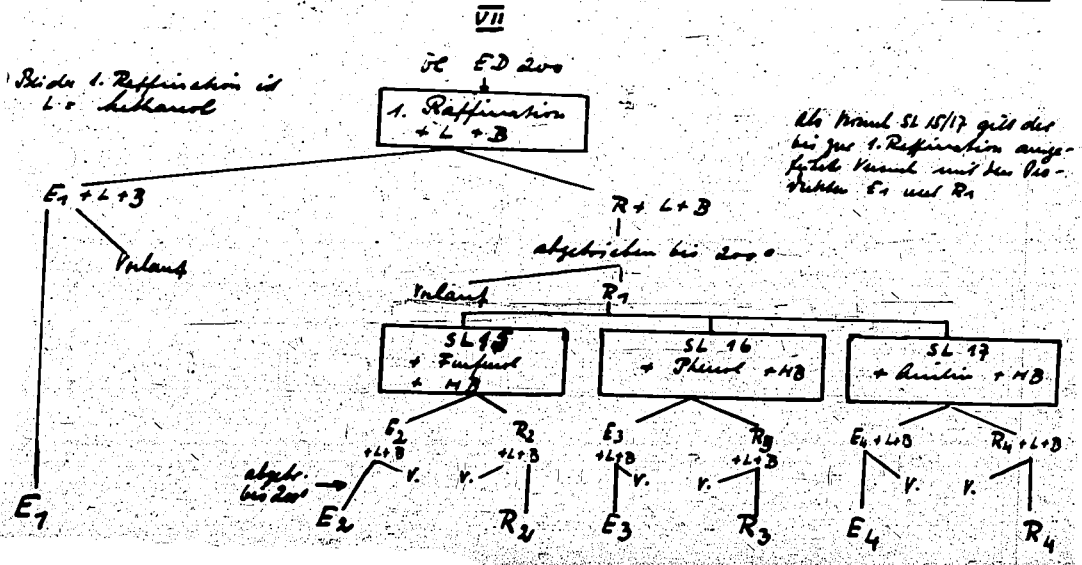 VII
Öl ED 200
Bei der 1. Raffination ist
L = Methanol
1. Raffination
+ L + B
Als Versuch SL 15/17 gilt der
bis zur 1. Raffination ausge-
führte Versuch mit den Pro-
dukten E1 und R1
E1 + L + B
R + L + B
Vorlauf
abgetrieben bis 200°
Vorlauf
R1
SL 15
+ Furfurol
+ MB
SL 16
+ Phenol + MB
SL 17
+ Anilin + MB
E2
+L+B
R2
+L+B
E3
+L+B
R3
+L+B
E4+L+B
R4+L+B
V. V. V. V. V. V.
abgetr.
bis 200°
E1 E2 R2 E3 R3 E4 R4